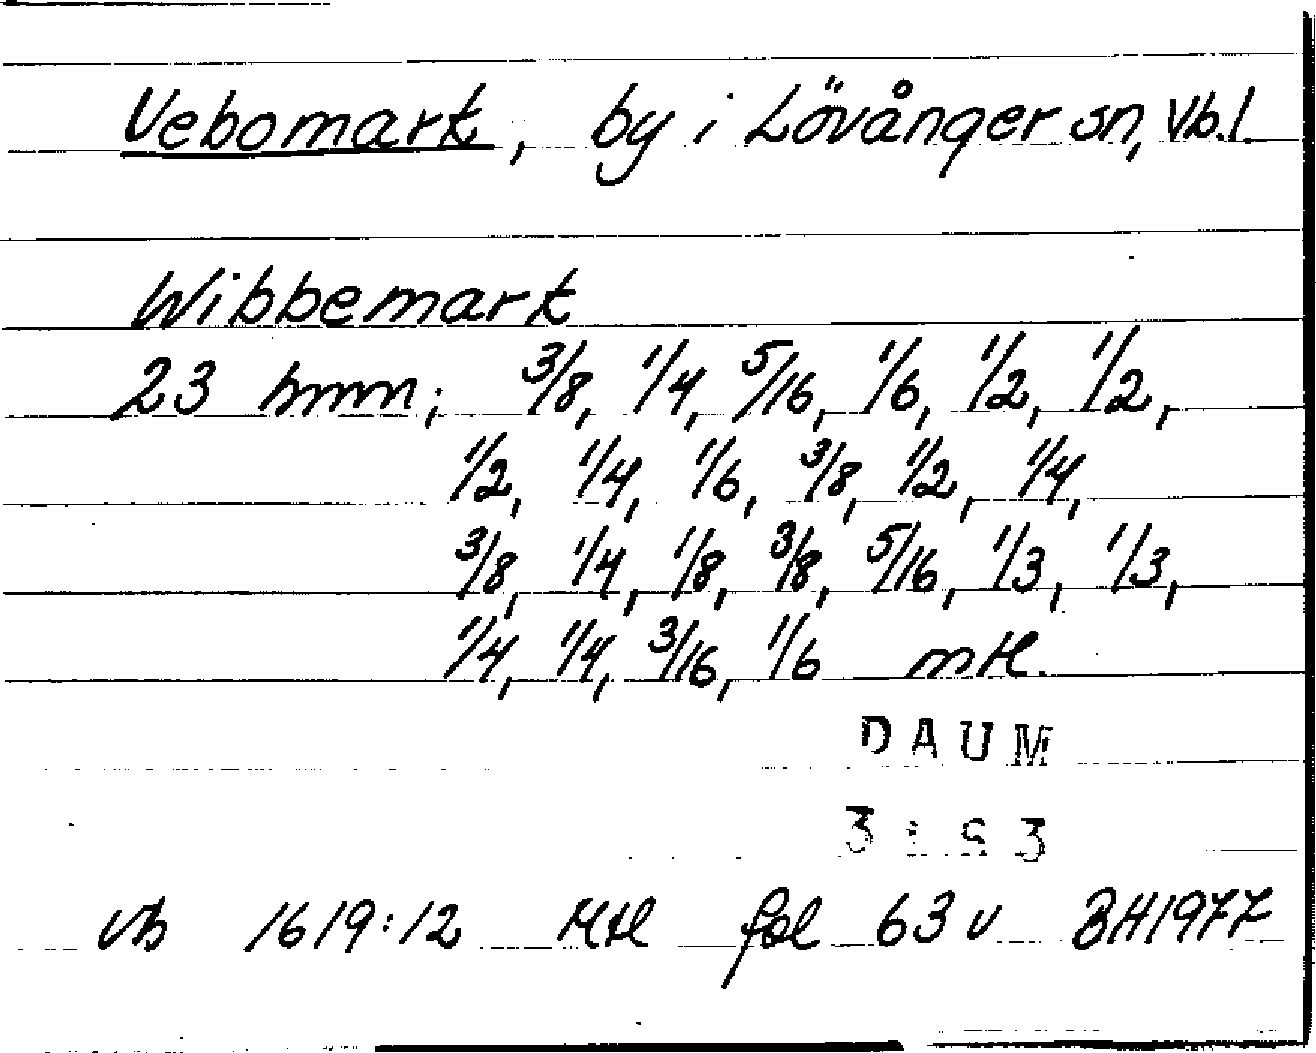 Vebomark, by i Lövånger sn, Vb.l.
Wibbemark
23 hmn; 3/8, 1/4, 5/16, 1/6, 1/2, 1/2,
1/2, 1/4, 1/6, 3/8, 1/2, 1/4,
3/8, 1/4, 1/8, 3/8, 5/16, 1/3, 1/3,
1/4, 1/4, 3/16, 1/6 mtl.
DAUM
vb 1619:12 Mtl fol 63 v BH1977